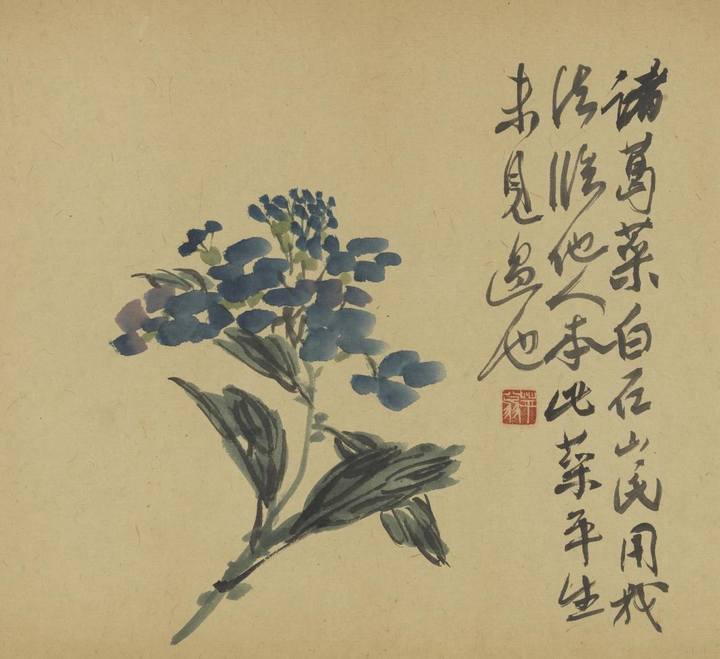 諸葛菜白石山民用我
法臨他人本此菜平生
未見過也
苹翁